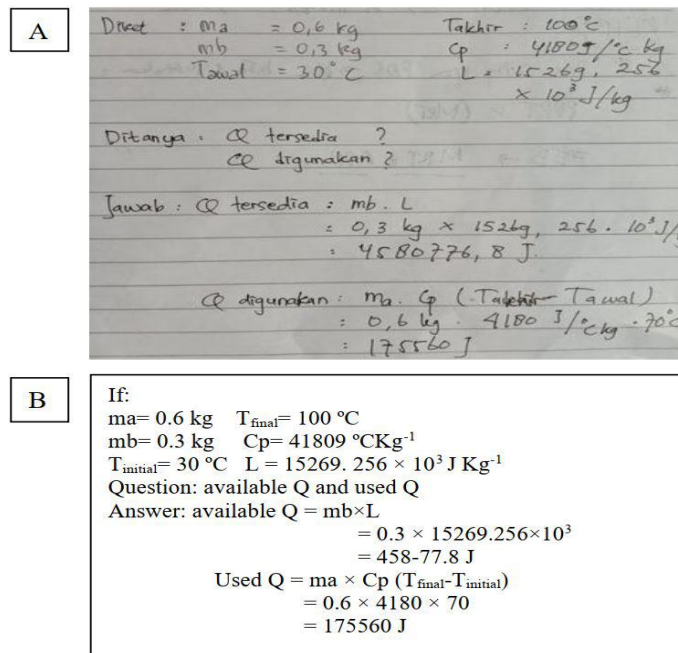 A
Diket : ma = 0,6 kg Takhir : 100°C
mb = 0,3 kg Cp : 4180 J/°C kg
Tawal = 30°C L = 15269, 256
× 10³ J/kg
Ditanya : Q tersedia ?
Q digunakan ?
Jawab : Q tersedia : mb . L
: 0,3 kg × 15269, 256 . 10³ J/
: 4580776, 8 J.
Q digunakan : ma . Cp (Takhir - Tawal)
: 0,6 kg . 4180 J/°C kg . 70°C
: 175560 J
B
If:
ma= 0.6 kg Tfinal= 100 ºC
mb= 0.3 kg Cp= 41809 ºCKg⁻¹
Tinitial= 30 ºC L = 15269. 256 × 10³ J Kg⁻¹
Question: available Q and used Q
Answer: available Q = mb×L
= 0.3 × 15269.256×10³
= 458-77.8 J
Used Q = ma × Cp (Tfinal-Tinitial)
= 0.6 × 4180 × 70
= 175560 J